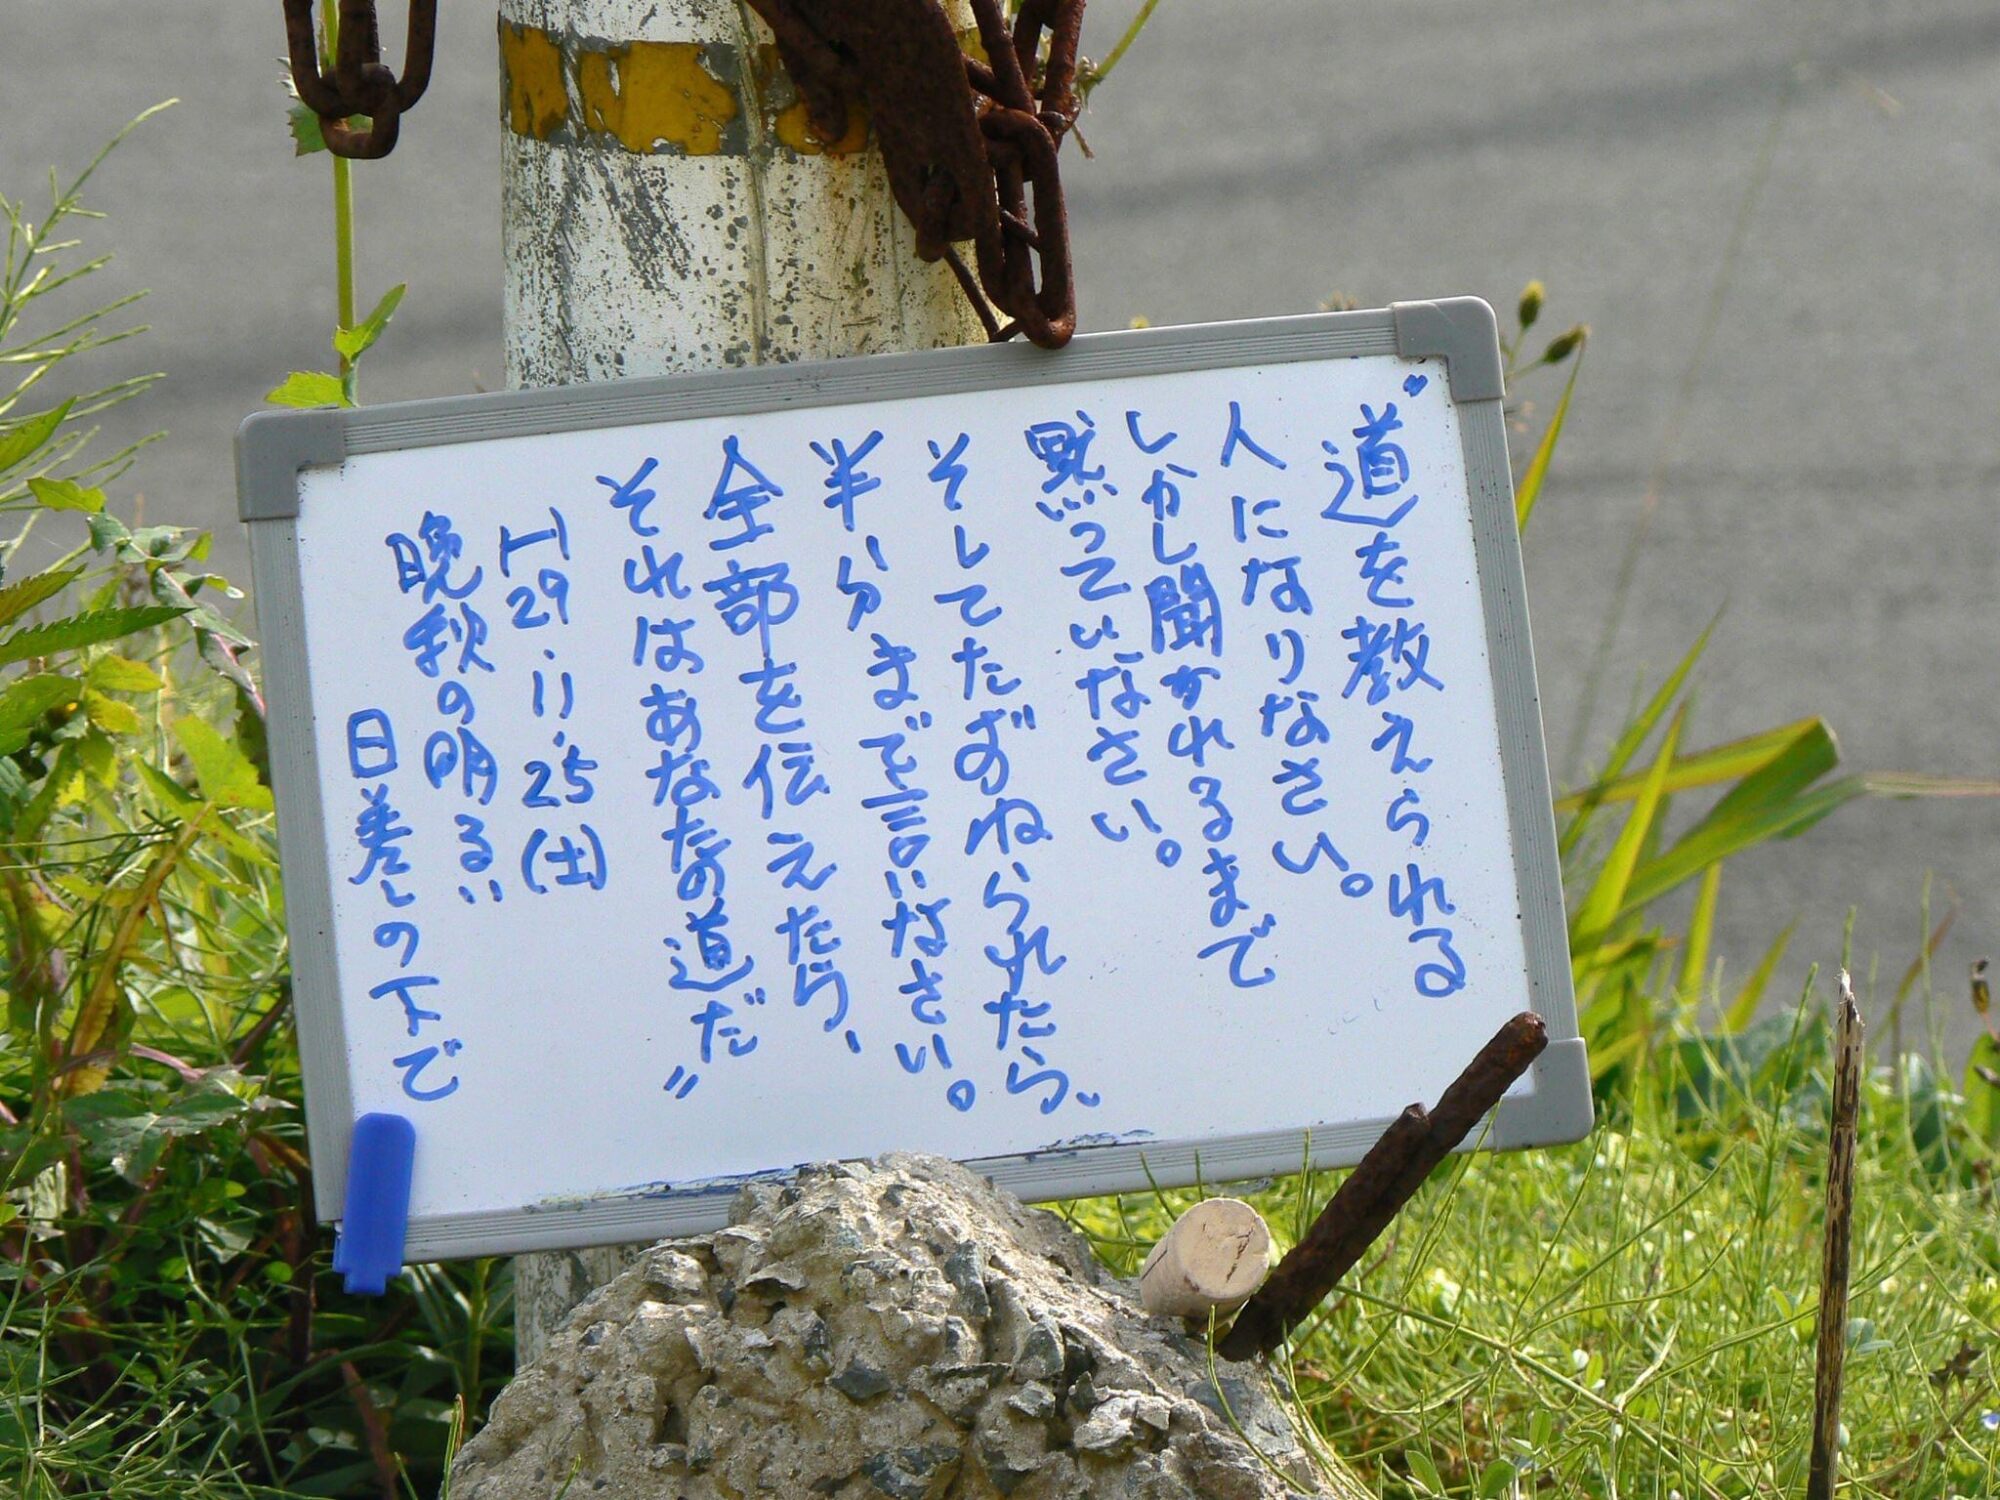 “道を教えられる
人になりなさい。
しかし聞かれるまで
黙っていなさい。
そしてたずねられたら、
半分まで言いなさい。
全部を伝えたら、
それはあなたの道だ〃
H29.11.25(土)
晩秋の明るい
日差しの下で